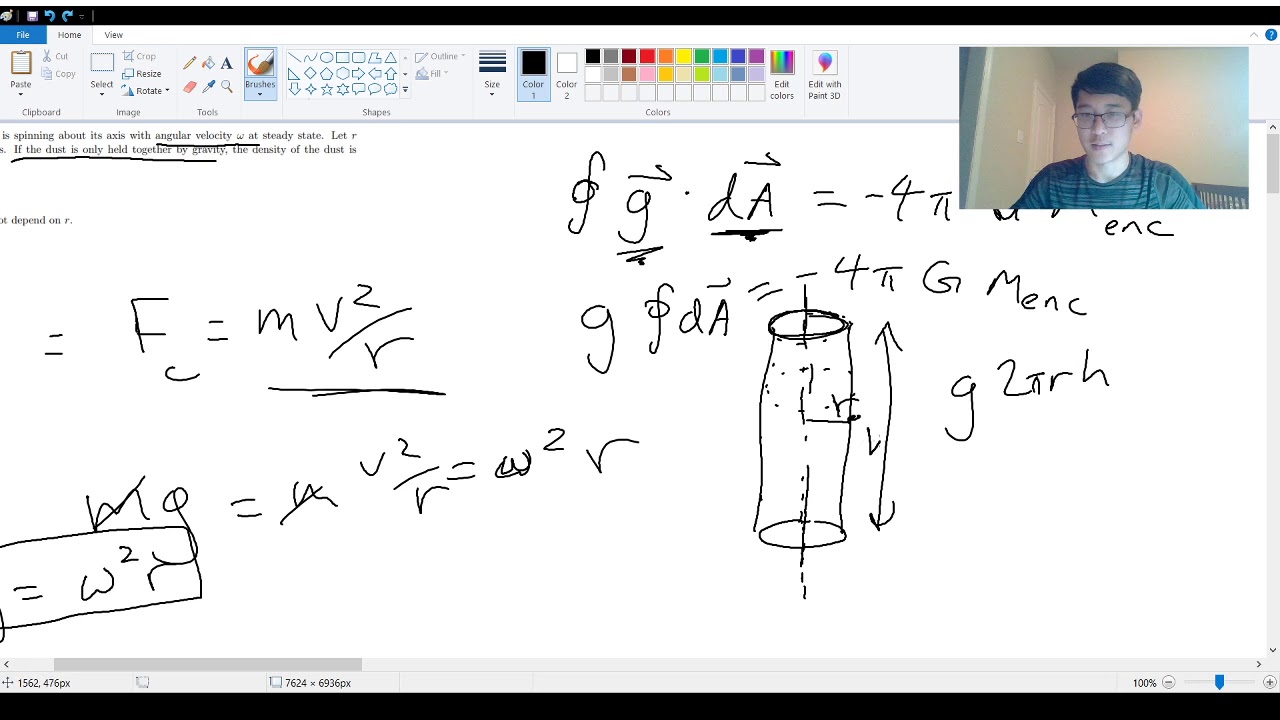 File Home View
Paste
Cut
Copy
Clipboard
Select
Crop
Resize
Rotate
Image
A
Tools
Brushes
Outline
Fill
Shapes
Size
Color 1
Color 2
Edit colors
Edit with Paint 3D
Colors
is spinning about its axis with angular velocity ω at steady state. Let r
s. If the dust is only held together by gravity, the density of the dust is
ot depend on r.
∮ g⃗ · dA⃗ = -4π M enc
g ∮ dA⃗ = -4π G M enc
= F c = m v² / r
r
h
g 2πrh
mg = m v² / r = ω² r
g = ω² r
1562, 476px
7624 × 6936px
100%